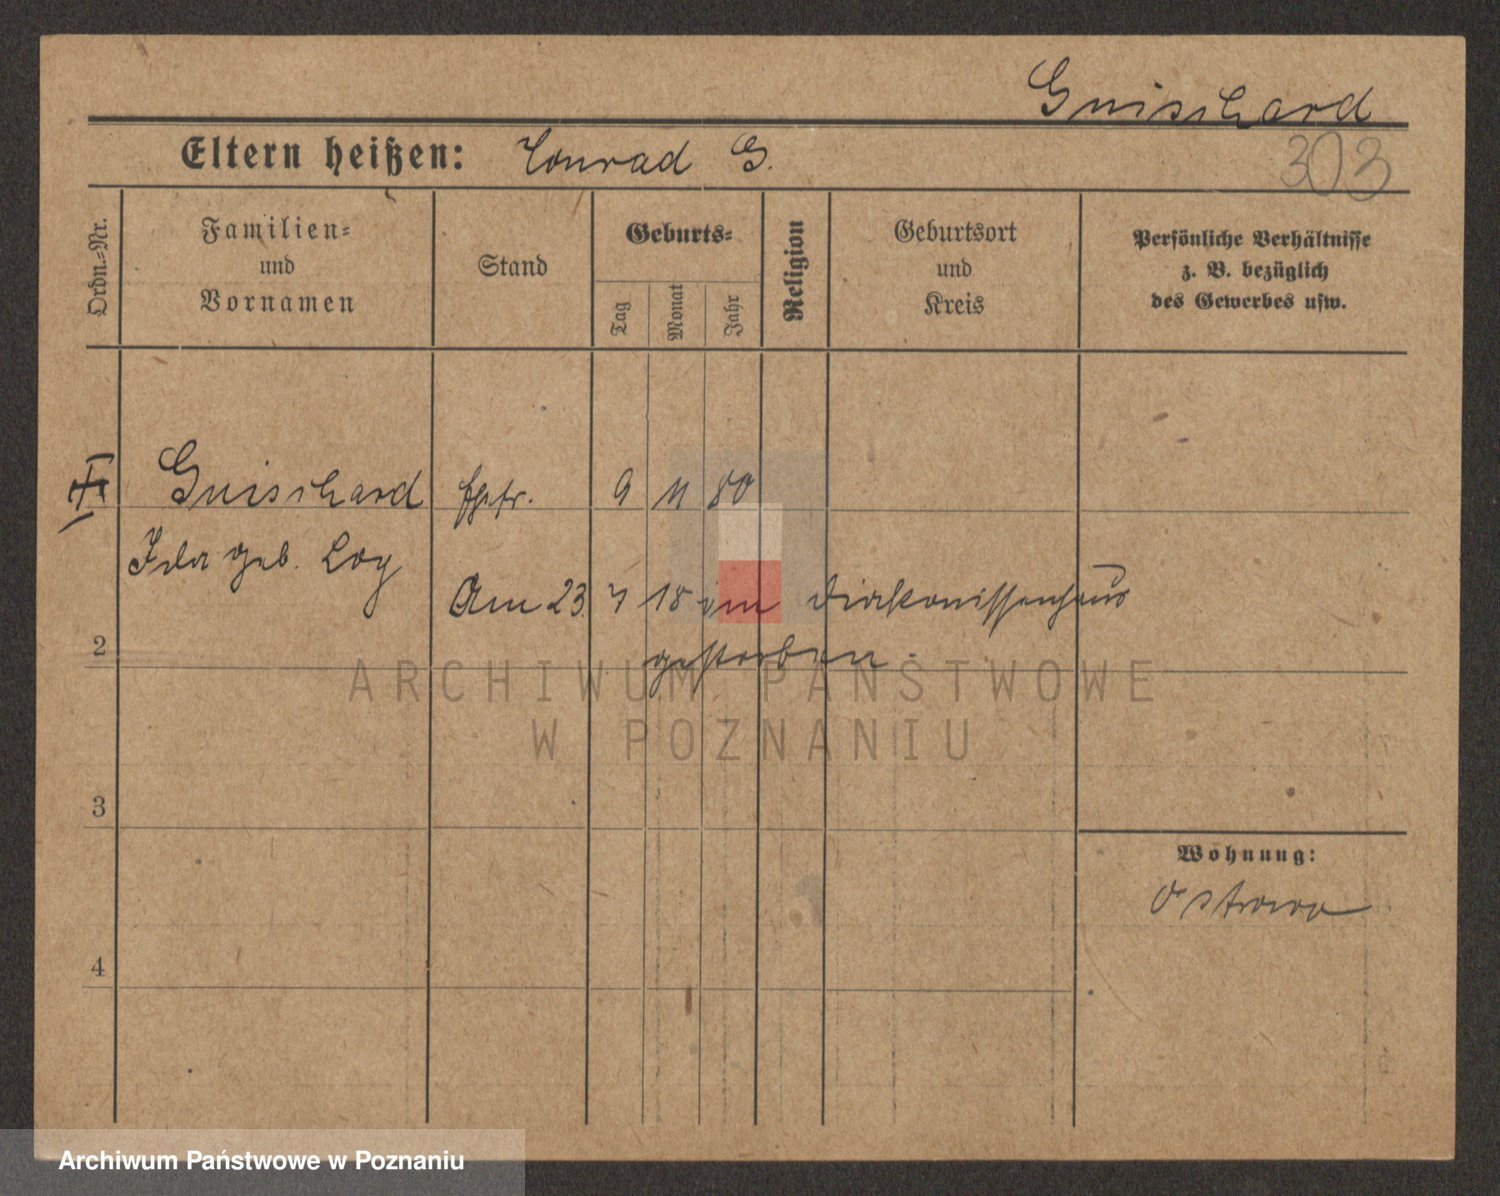 Guischard
Eltern heißen: Conrad G.
303
Ordn.-Nr.
Familien-
und
Vornamen
Stand
Geburts-
Tag
Monat
Jahr
Religion
Geburtsort
und
Kreis
Persönliche Verhältnisse
z. B. bezüglich
des Gewerbes usw.
Guischard Ehefr. 9 11 80
Ida geb. Loy
Am 23. 7 18 im Diakonissenhaus
gestorben.
2
3
4
Wohnung:
Ostrowo
ARCHIWUM PAŃSTWOWE
W POZNANIU
Archiwum Państwowe w Poznaniu